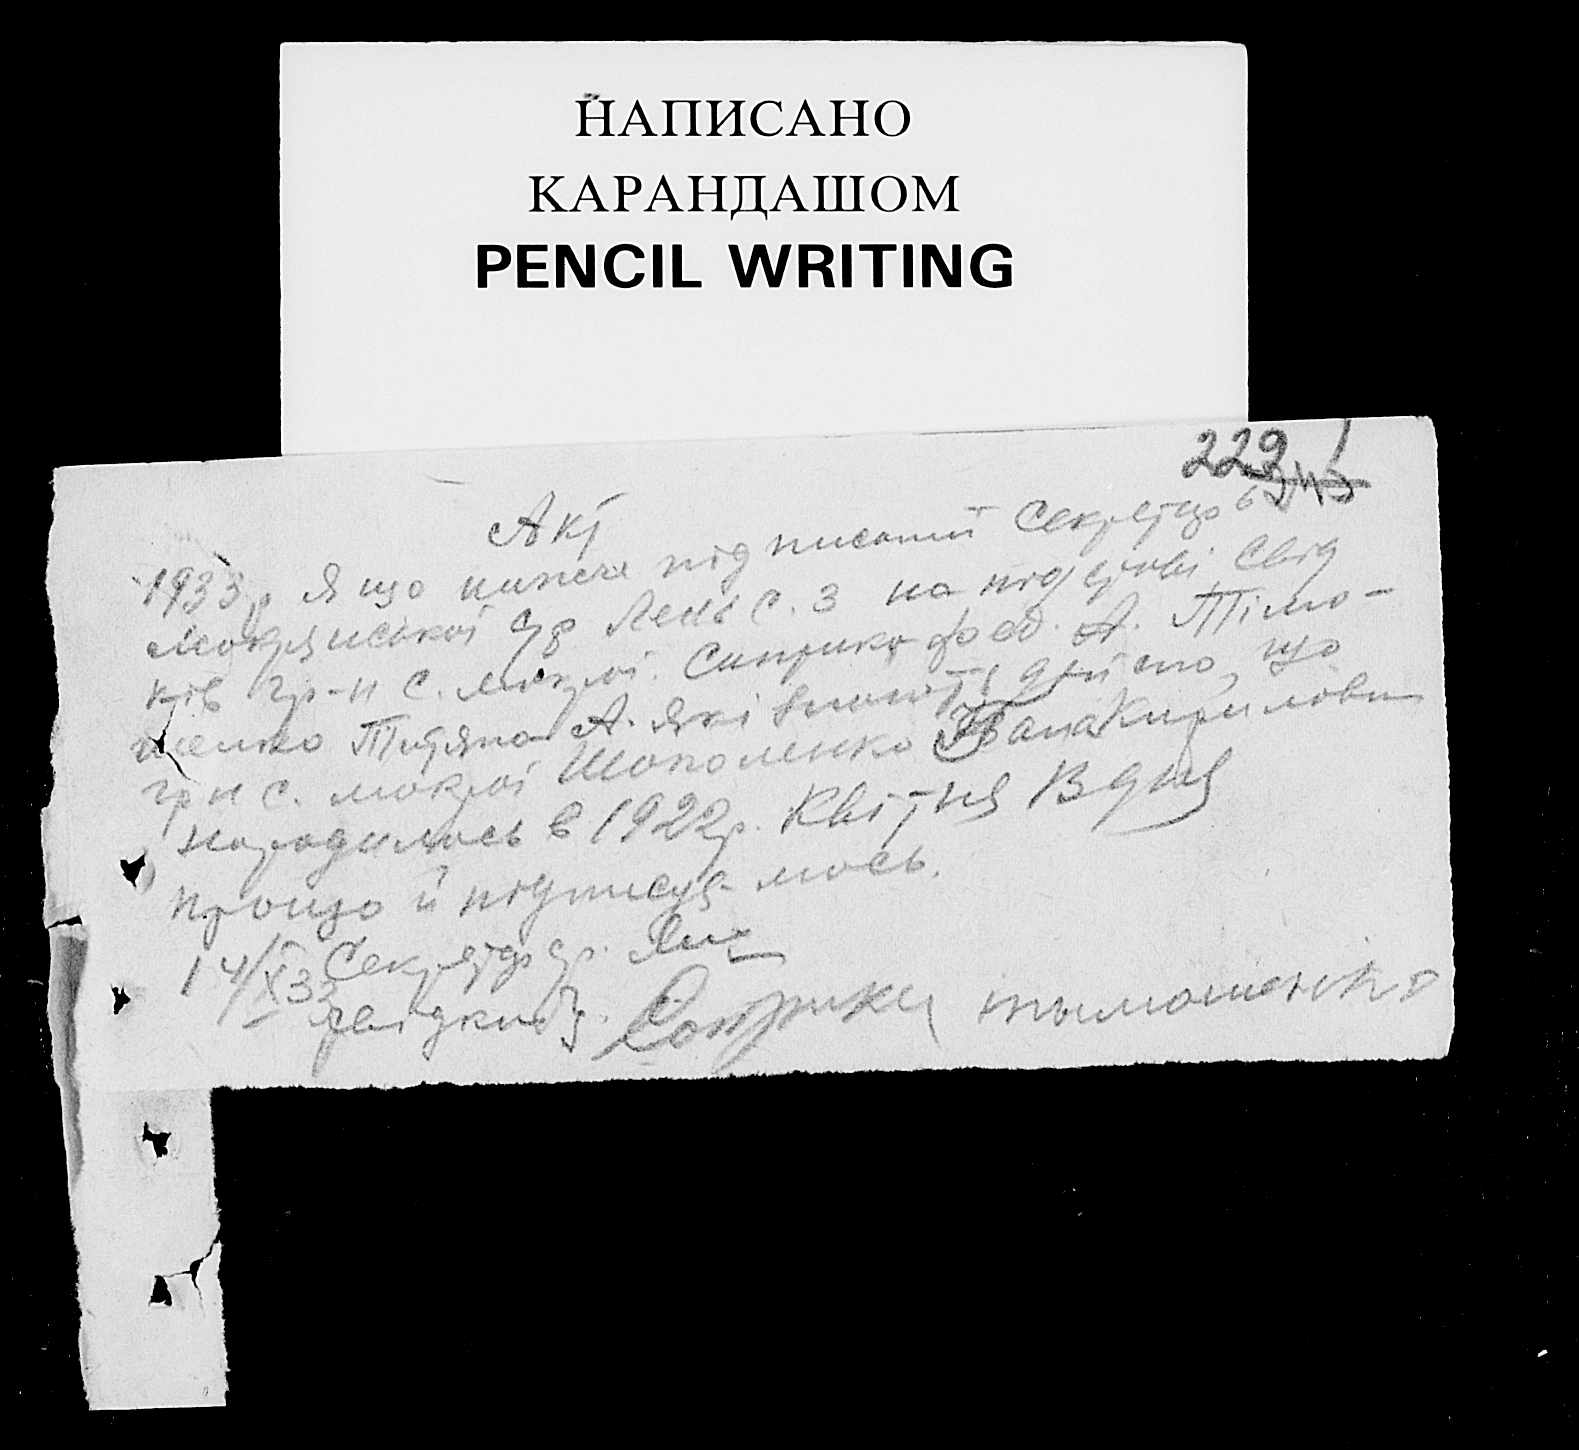 НАПИСАНО
КАРАНДАШОМ
PENCIL WRITING
229
Акт
1933р Я що нижче підписаний Секретар
Мокрянської с. з на підставі Свід
ків гр-н с. Мокрої. Сиприка Фед. А. Тімо-
шенко Тетяна А. які дійсно, що
гр н с. Мокрої Шополенко Кирилови
народилась в 1922р. Квітня В дня
прощо й підписуємось.
14/X 33 Секретар ср.
свідки Соприка тымошенко